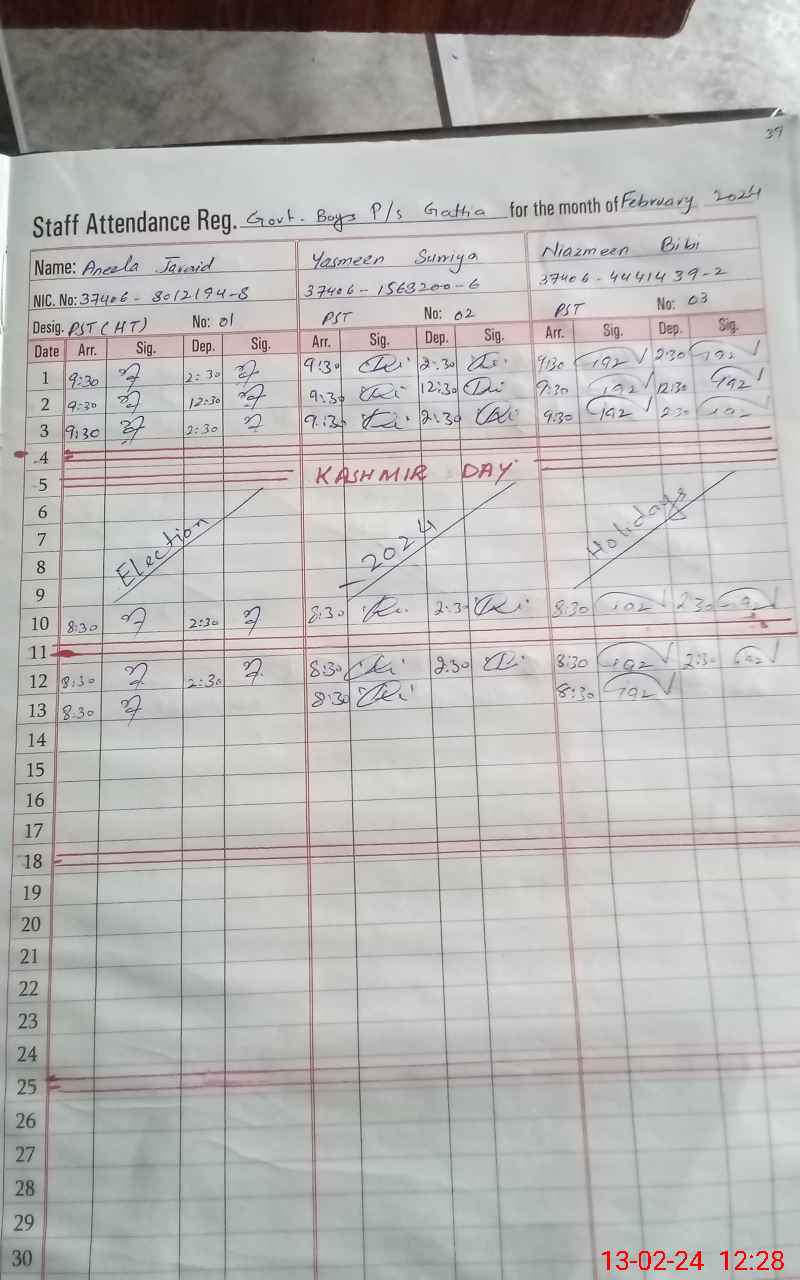 39
Staff Attendance Reg. Govt. Boys P/s Gattia for the month of February 2024
Name: Aneela Javaid Yasmeen Sumiya Niazmeen Bibi
NIC. No: 37406-8012194-8 37406-1563200-6 37406-4441439-2
Desig. PST (HT) No: 01 PST No: 02 PST No: 03
Date Arr. Sig. Dep. Sig. Arr. Sig. Dep. Sig. Arr. Sig. Dep. Sig.
1 9:30 2:30 9:30 2:30 9:30 2:30
2 9:30 12:30 9:30 12:30 9:30 12:30
3 9:30 2:30 9:30 2:30 9:30 2:30
4
5 KASHMIR DAY
6
7 Election 2024 Holidays
8
9
10 8:30 2:30 8:30 2:30 8:30 2:30
11
12 8:30 2:30 8:30 2:30 8:30 2:30
13 8:30 8:30 8:30
14
15
16
17
18
19
20
21
22
23
24
25
26
27
28
29
30
13-02-24 12:28